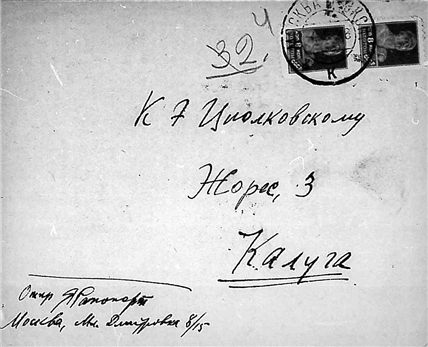 4
32.
К Э Циолковскому
Жорес, 3
Калуга
Отпр Я Рапопорт
Москва, Мл. Дмитровка 8/15